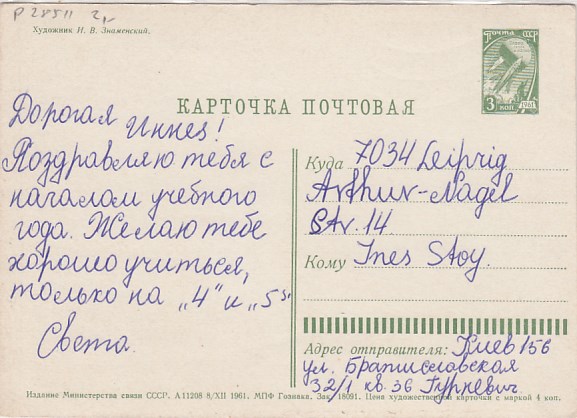 Р 28511 2,-
Художник И. В. Знаменский.
ПОЧТА СССР
3 коп. 1961
КАРТОЧКА ПОЧТОВАЯ
Дорогая
Иннез!
Поздравляю тебя с
началом учебного
года. Желаю тебе
хорошо учиться,
только на „4" и „5"
Света.
Куда 7034 Leipzig
Arthur-Nagel
Str. 14
Кому Ines Stoy.
Адрес отправителя: Киев 156
ул. Братиславская
32/1 кв. 36 Гурневич.
Издание Министерства связи СССР. А11208 8/XII 1961. МПФ Гознака. Зак. 18091. Цена художественной карточки с маркой 4 коп.